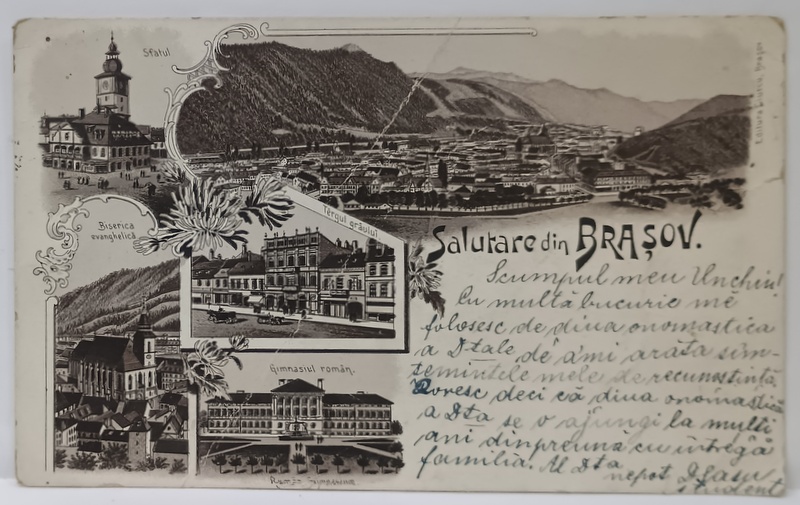 Sfatul
Biserica
evanghelică
Tèrgul grâului
Gimnasiul român.
Editura Brașov
Salutare din BRAȘOV.
Scumpul meu Unchiu!
Cu multa bucurie mĕ
folosesc de diua onomastica
a Dtale de ami arăta sim-
semintele mele de recunostintă
Doresc deci că diua onomastică
a Dta se o ajungi la multi
ani dinpreuna cu intrégă
familia. Al Dta
nepot
student